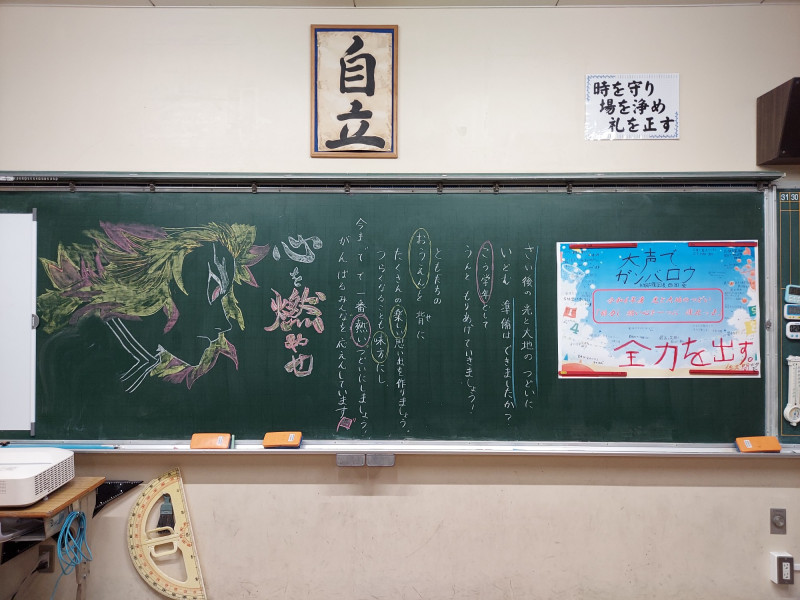 自立
時を守り
場を浄め
礼を正す
大声で
ガンバロウ
全力を出す。
さい後の光と大地のつどいに
いどむ 準備はできましたか?
こう学年として
うんともりあげていきましょう!
ともだちの
おうえんを背に
たくさんの楽しい思い出を作りましょう。
つらくなることも味方にし
今までで一番熱いつどいにしましょう!
がんばるみんなを応えんしています
心を燃やせ
30
31